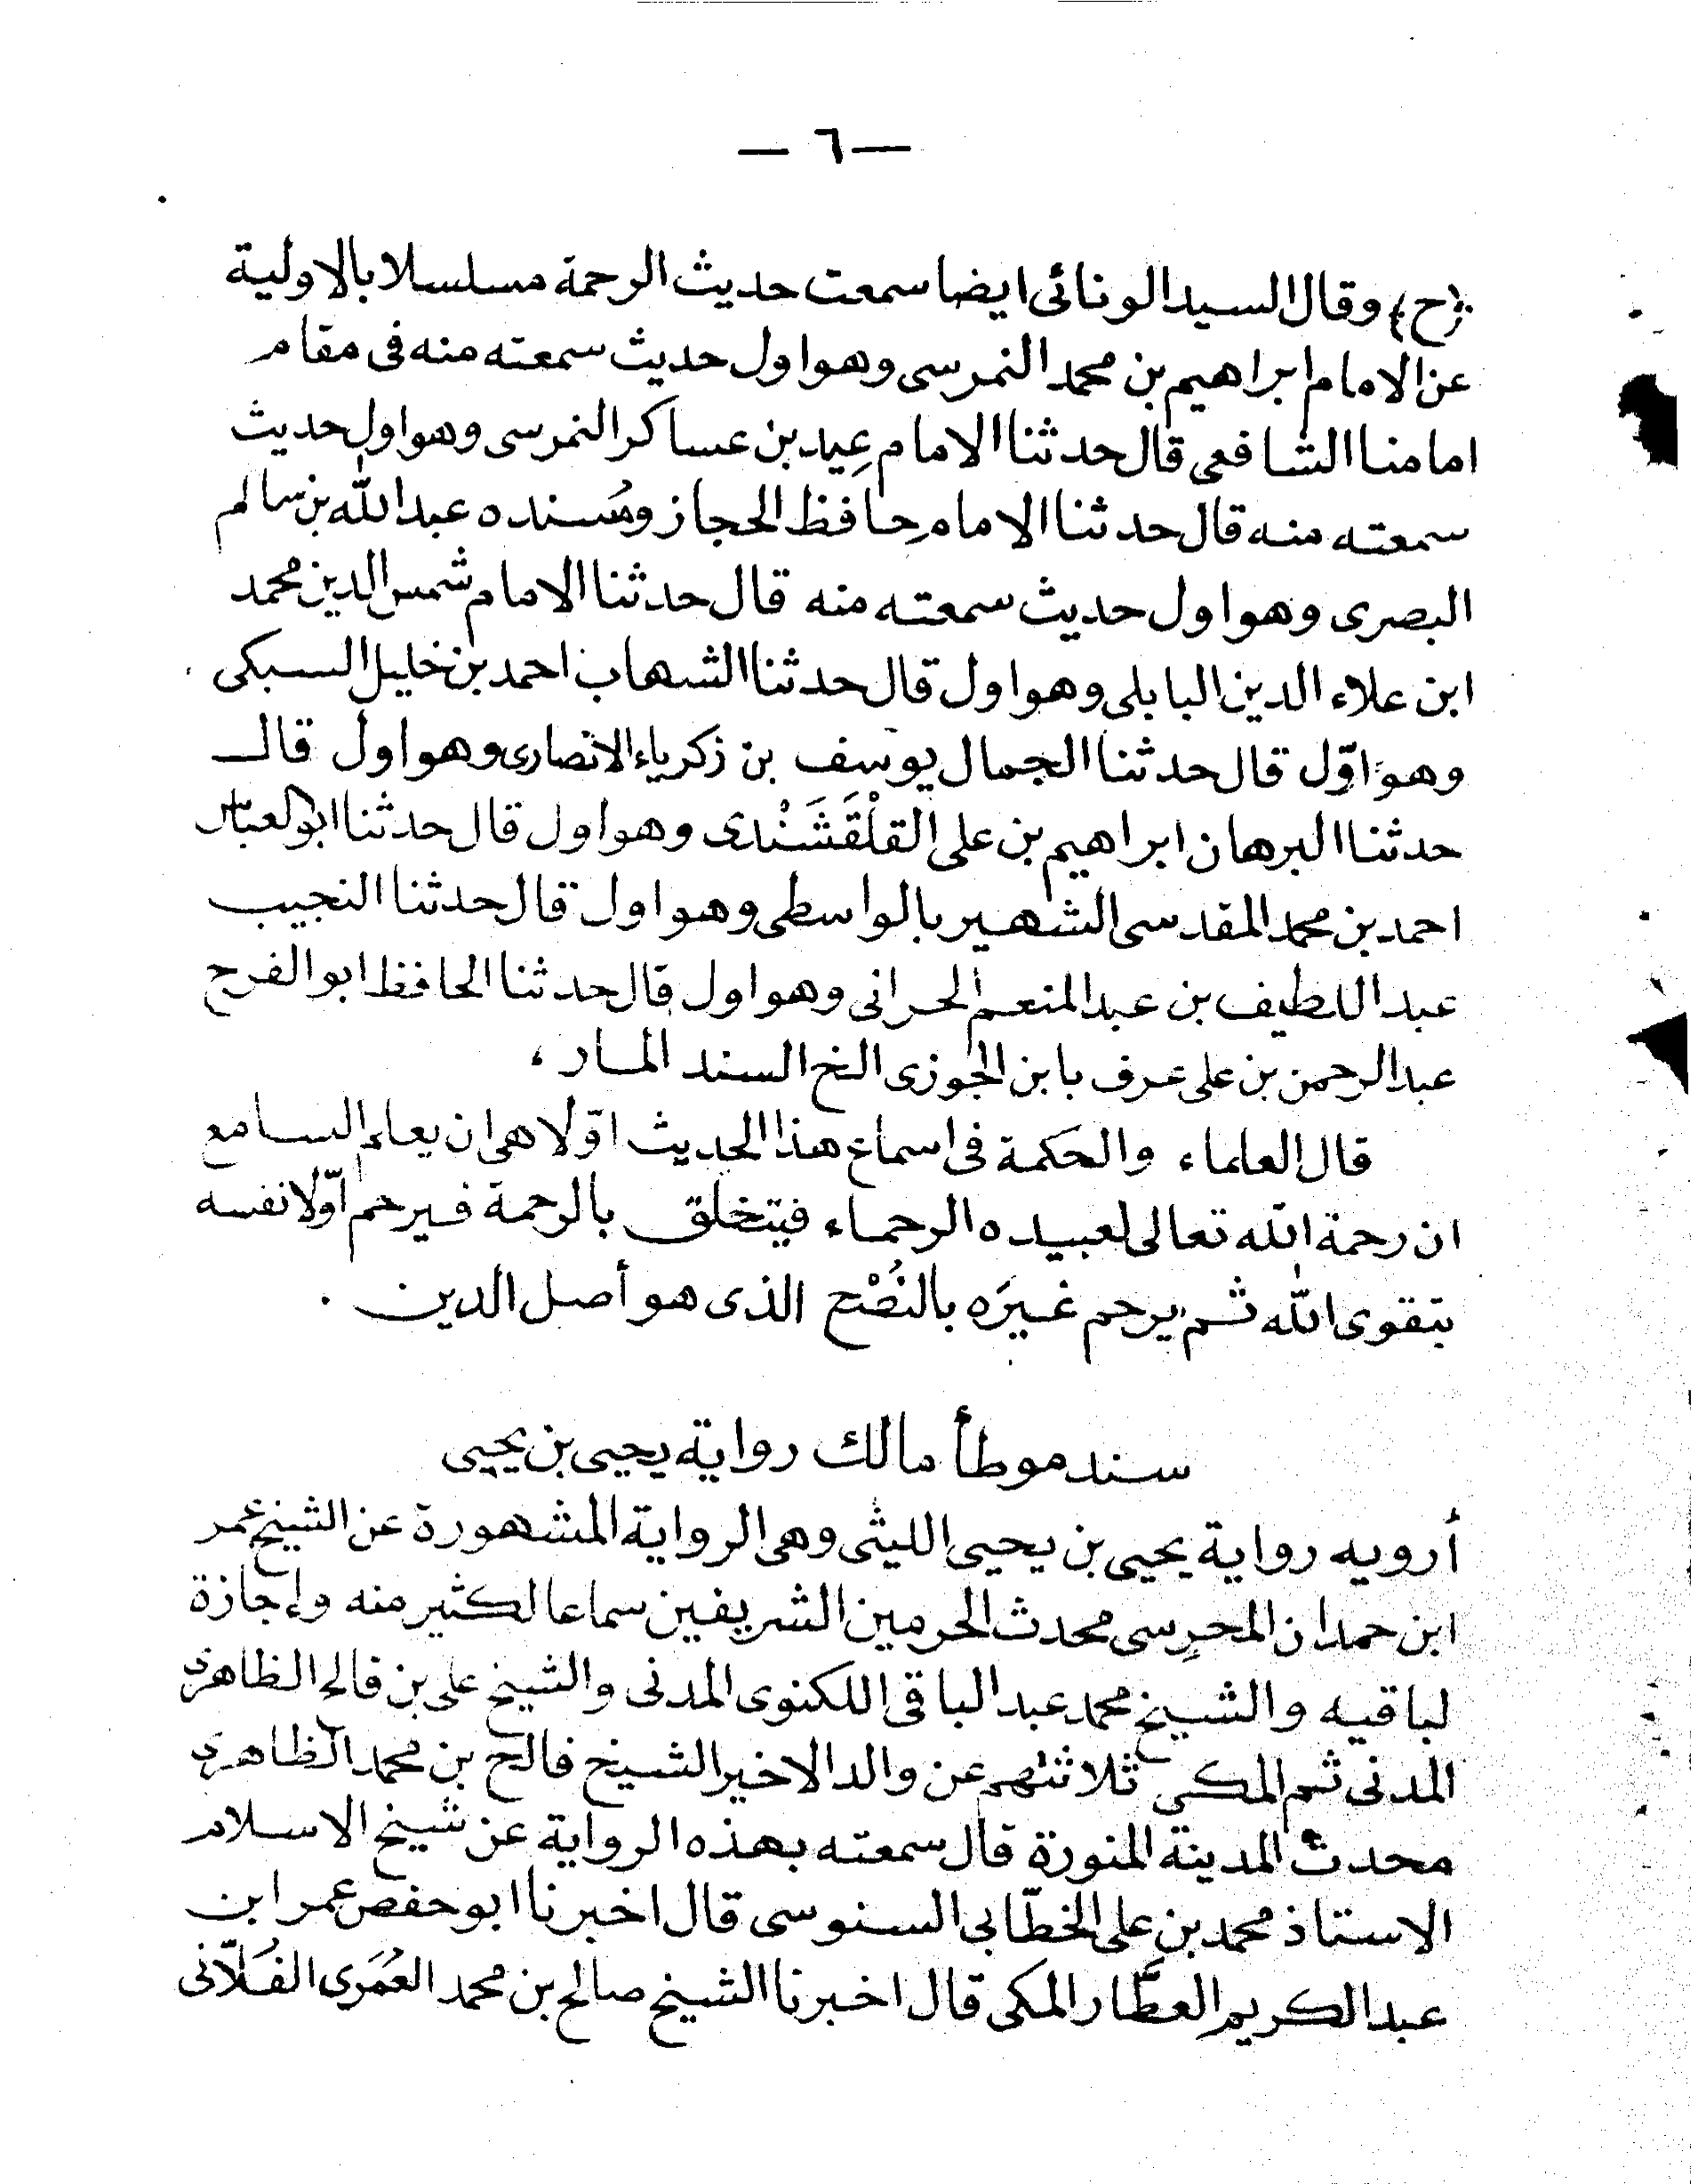 — ٦ —
(ح) وقال السيد الونائى ايضا سمعت حديث الرحمة مسلسلا بالاولية
عن الامام ابراهيم بن محمد النمرسى وهو اول حديث سمعته منه فى مقام
امامنا الشافعى قال حدثنا الامام عِيد بن عساكر النمرسى وهو اول حديث
سمعته منه قال حدثنا الامام حافظ الحجاز ومُسنده عبد الله بن سالم
البصرى وهو اول حديث سمعته منه قال حدثنا الامام شمس الدين محمد
ابن علاء الدين البابلى وهو اول قال حدثنا الشهاب احمد بن خليل السبكى
وهو اوّل قال حدثنا الجمال يوسف بن زكرياء الانصارى وهو اول قال
حدثنا البرهان ابراهيم بن على القلْقَشَنْدى وهو اول قال حدثنا ابو العباس
احمد بن محمد المقدسى الشهير بالواسطى وهو اول قال حدثنا النجيب
عبد اللطيف بن عبد المنعم الحرانى وهو اول قال حدثنا الحافظ ابو الفرج
عبد الرحمن بن على عرف بابن الجوزى الخ السند المار ،
قال العلماء والحكمة فى اسماع هذا الحديث اوّلا هى ان يعلم السامع
ان رحمة الله تعالى لعبيده الرحماء فيتخلق بالرحمة فيرحم اوّلا نفسه
بتقوى الله ثم يرحم غيرَه بالنُصْح الذى هو أصل الدين .
سند موطأ مالك رواية يحيى بن يحيى
أرويه رواية يحيى بن يحيى الليثى وهى الرواية المشهورة عن الشيخ عمر
ابن حمدان المحرِسى محدث الحرمين الشريفين سماعا لكثير منه وإجازة
لباقيه والشيخ محمد عبد الباقى اللكنوى المدنى والشيخ على بن فالح الظاهرى
المدنى ثم المكى ثلاثتهم عن والد الاخير الشيخ فالح بن محمد الظاهرى
محدث المدينة المنورة قال سمعته بهذه الرواية عن شيخ الاسلام
الاستاذ محمد بن على الخطّابى السنوسى قال اخبرنا ابو حفص عمر ابن
عبد الكريم العطّار المكى قال اخبرنا الشيخ صالح بن محمد العُمَرى الفُلّانى